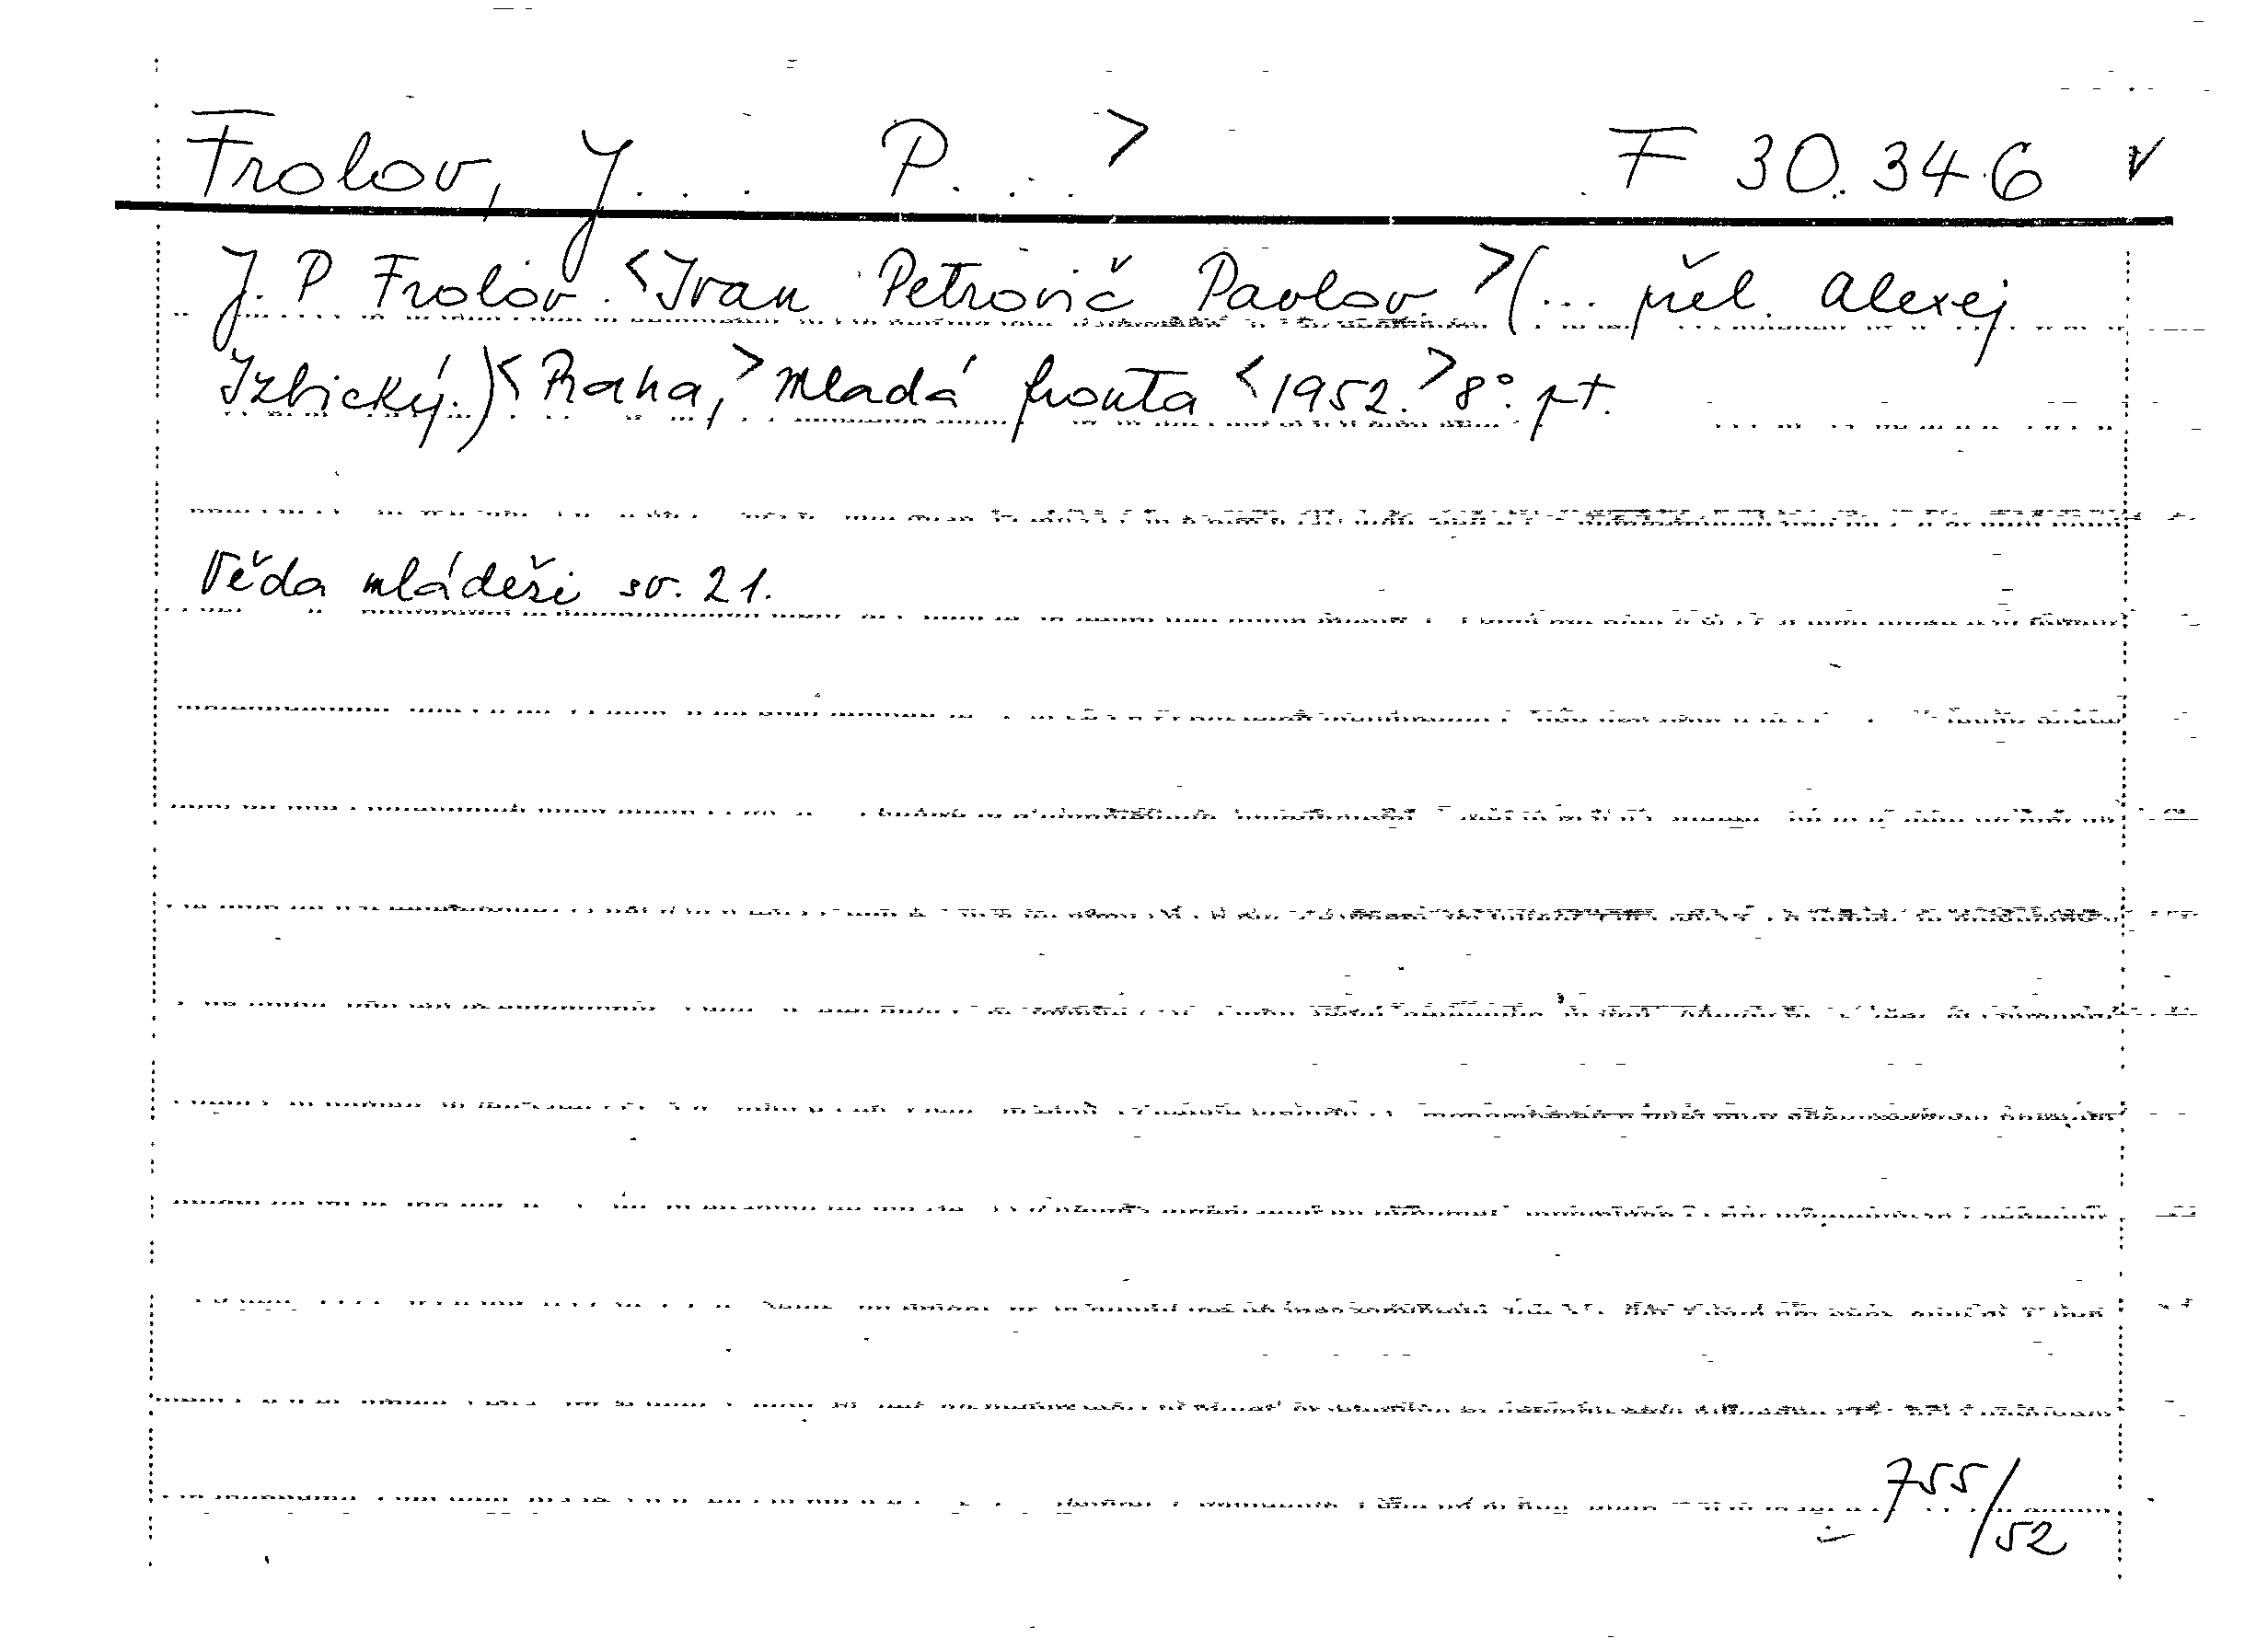 Frolov, J... P...> F 30.346 v
J. P Frolov. <Ivan Petrovič Pavlov>(... přel. Alexej
Izbický.)<Praha,> Mladá fronta <1952.> 8°. pt.
Věda mládeži sv. 21.
755/52